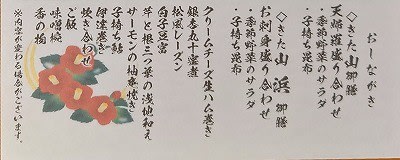 おしながき
◇きた山 御膳
天婦羅盛り合わせ
・季節野菜のサラダ
・子持ち昆布
◇きた山 浜 御膳
お刺身盛り合わせ
・季節野菜のサラダ
・子持ち昆布
クリームチーズ生ハム巻き
銀杏丸十蜜煮
松風レーズン
白子豆富
芹と根三つ葉の浅地和え
サーモンの柚庵焼き
子持ち鮎
伊達巻き
炊き合わせ
ご飯
味噌椀
香の物
※内容が変わる場合がございます。